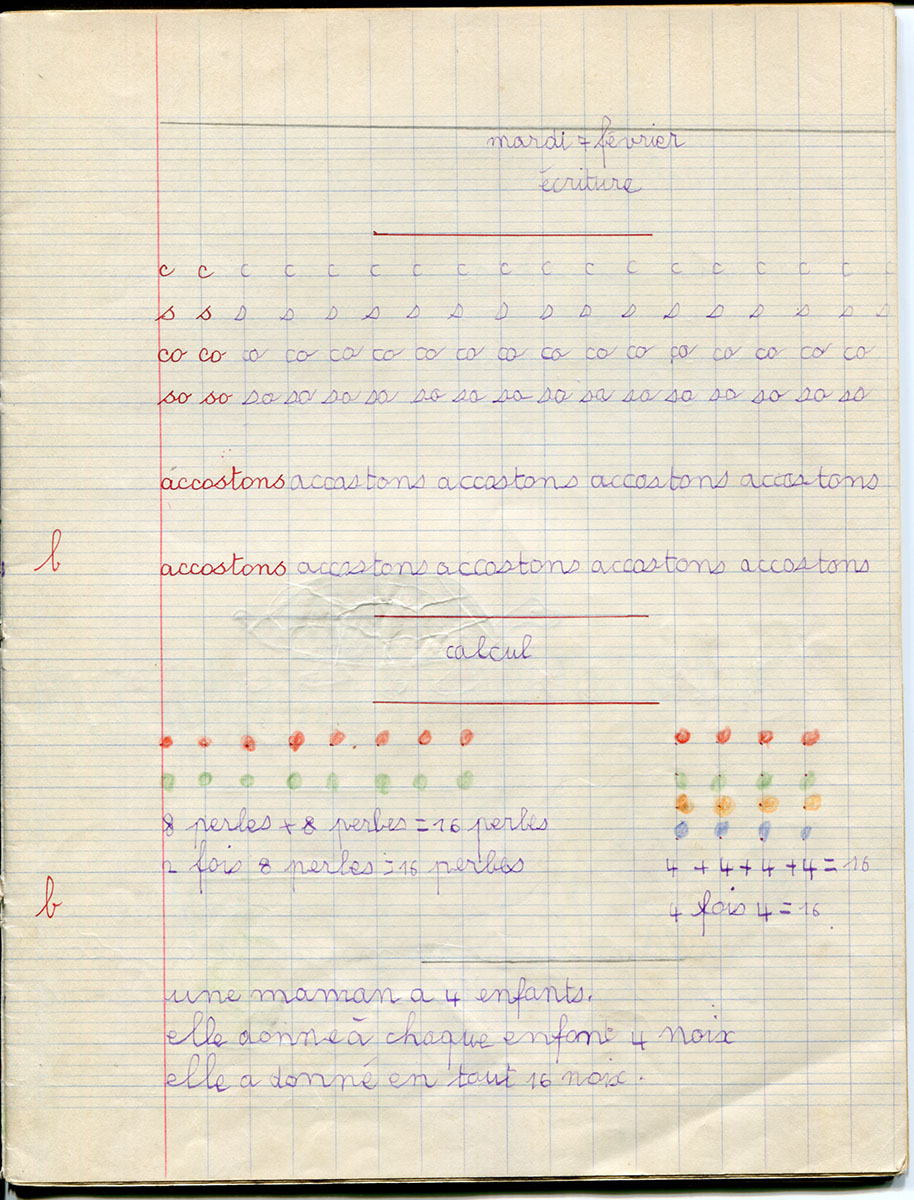 mardi 7 février
écriture
c c c c c c c c c c c c c c c c c c
s s s s s s s s s s s s s s s s s s
co co co co co co co co co co co co co co co co co
so so so so so so so so so so so so so so so so so
accostons accostons accostons accostons accostons
b
accostons accostons accostons accostons accostons
calcul
8 perles + 8 perles = 16 perles
2 fois 8 perles = 16 perles
4 + 4 + 4 + 4 = 16
b
4 fois 4 = 16
une maman a 4 enfants.
elle donne à chaque enfant 4 noix
elle a donné en tout 16 noix.